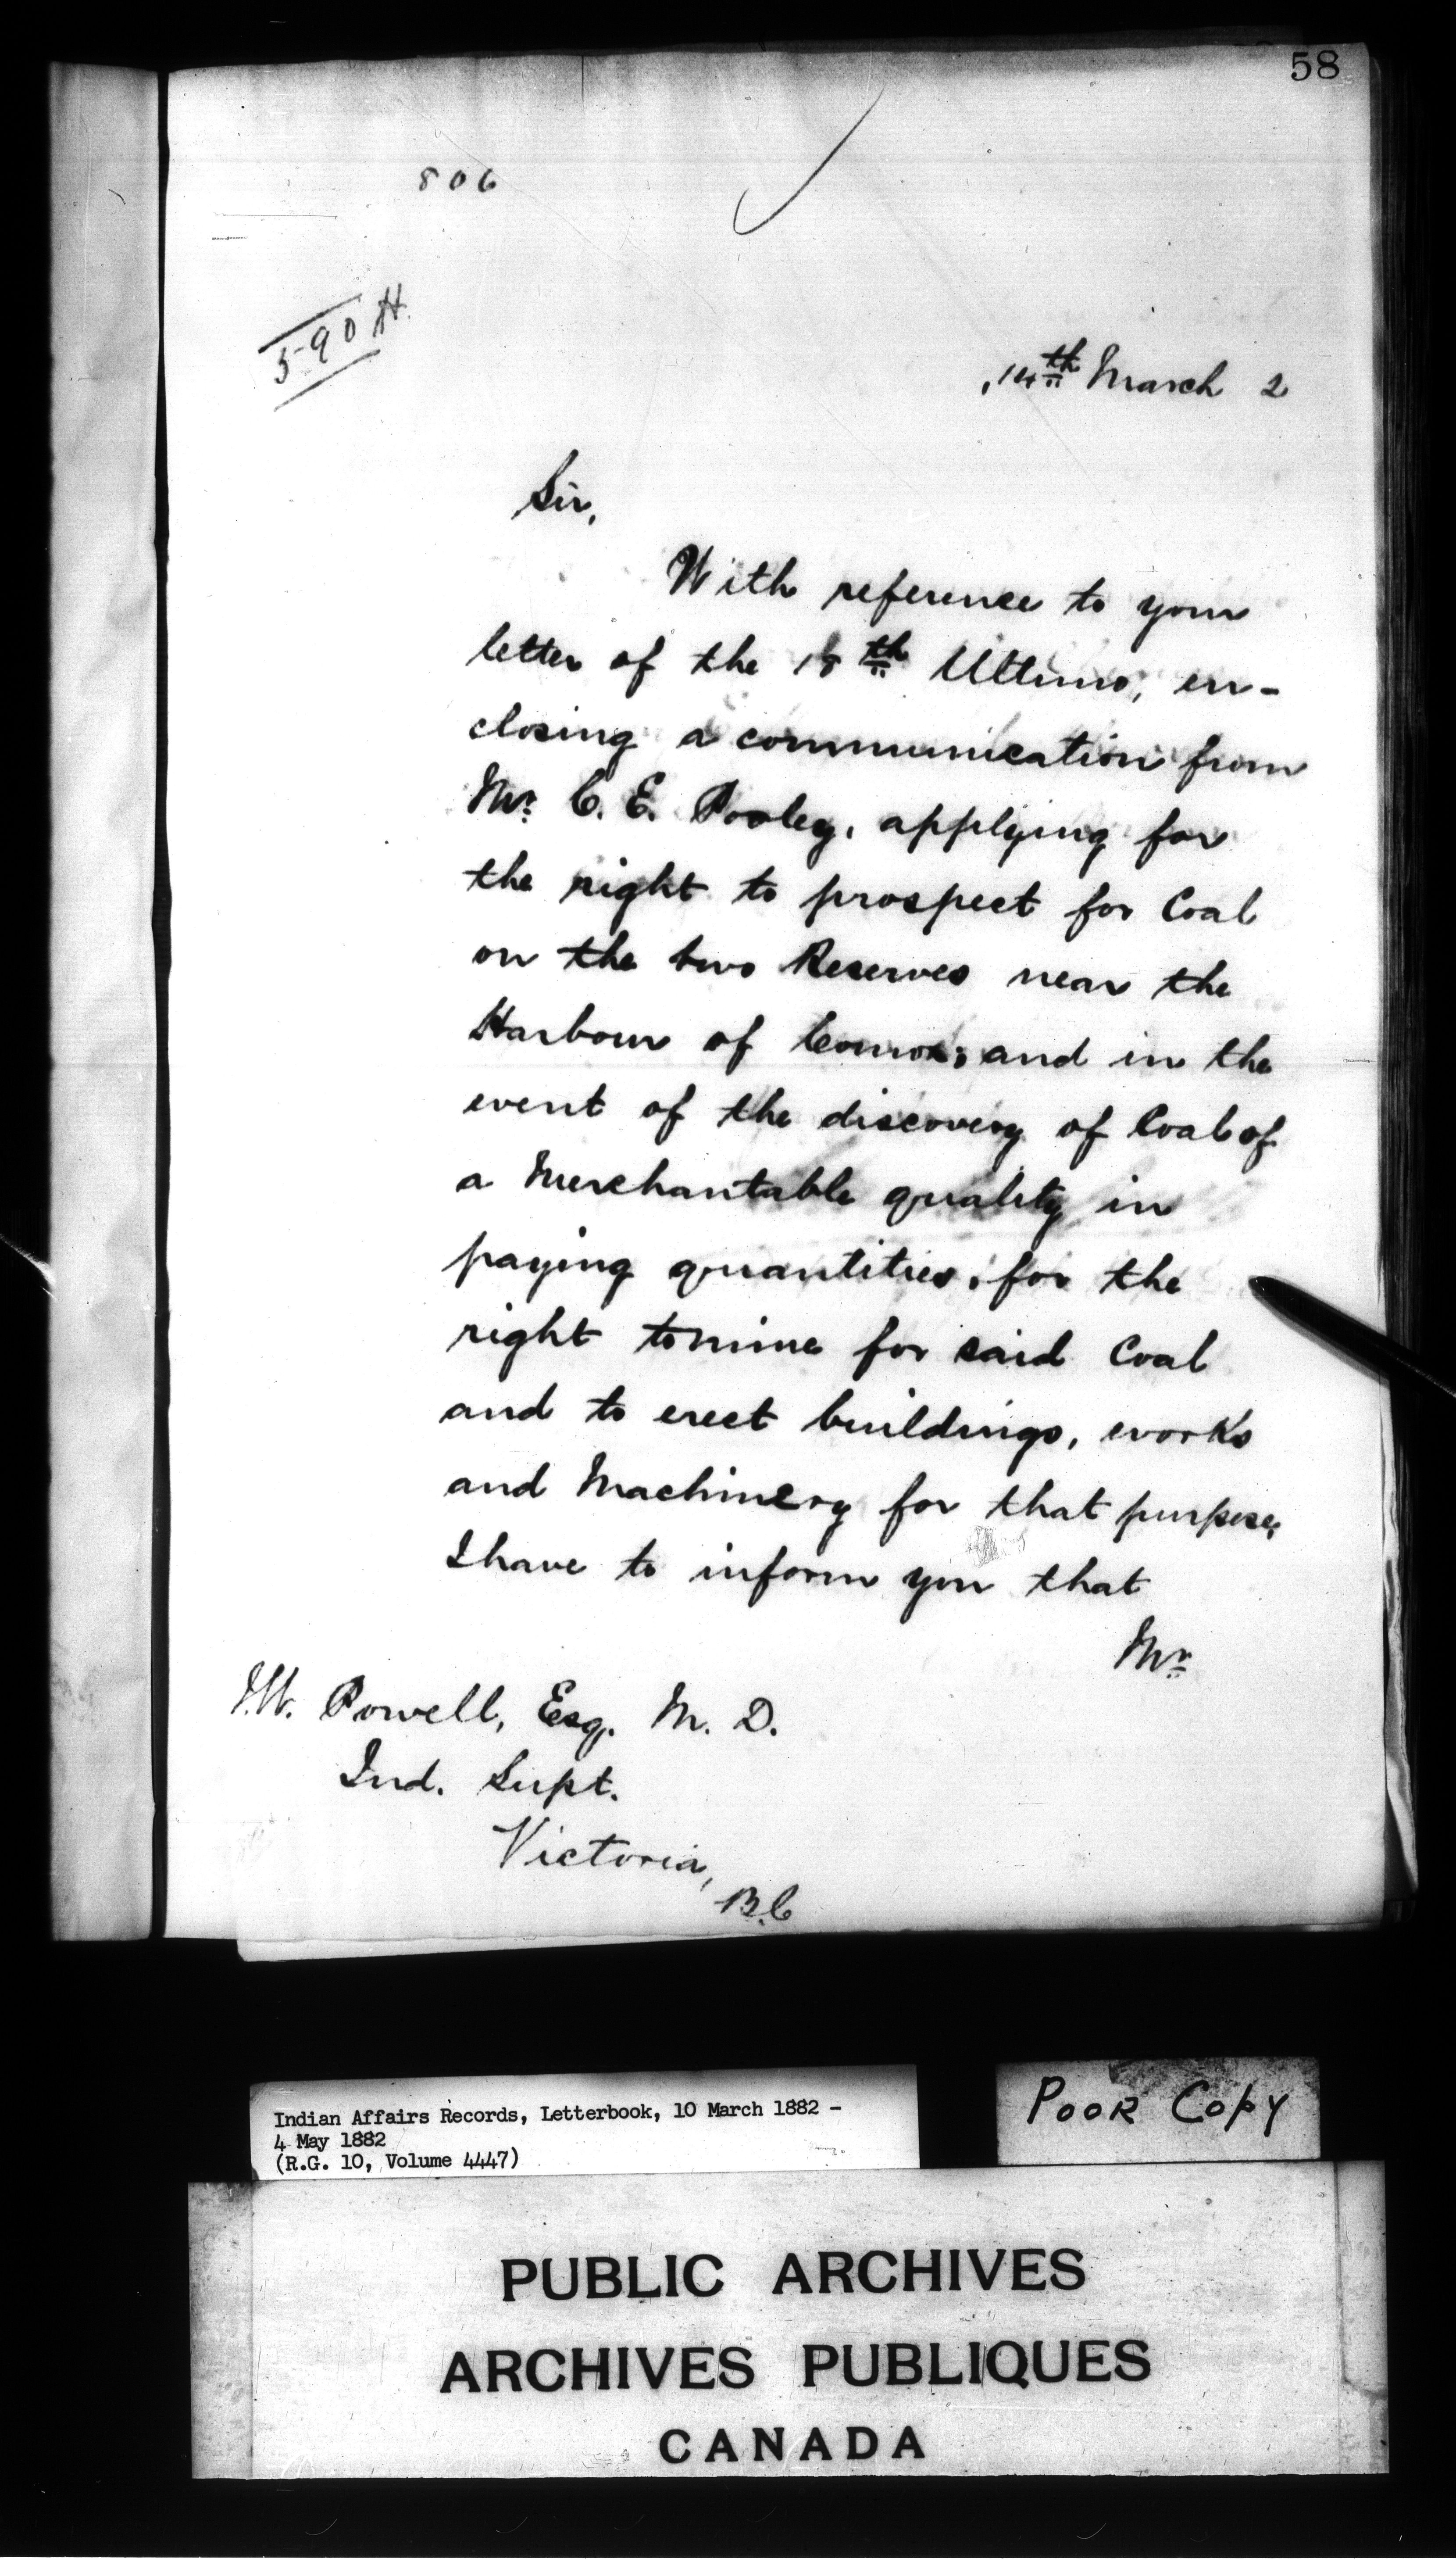 58
806
590 H.
14th March 2
Sir,
With reference to your
letter of the 18th Ultimo, en-
closing a communication from
Mr. C. E. Pooley, applying for
the right to prospect for Coal
on the two Reserves near the
Harbour of Comox; and in the
event of the discovery of Coal of
a Merchantable quality in
paying quantities, for the
right to mine for said Coal
and to erect buildings, works
and Machinery for that purpose,
I have to inform you that
Mr
I.W. Powell, Esq. M. D.
Ind. Supt.
Victoria,
B.C
Indian Affairs Records, Letterbook, 10 March 1882 -
4 May 1882
(R.G. 10, Volume 4447)
POOR COPY
PUBLIC ARCHIVES
ARCHIVES PUBLIQUES
CANADA